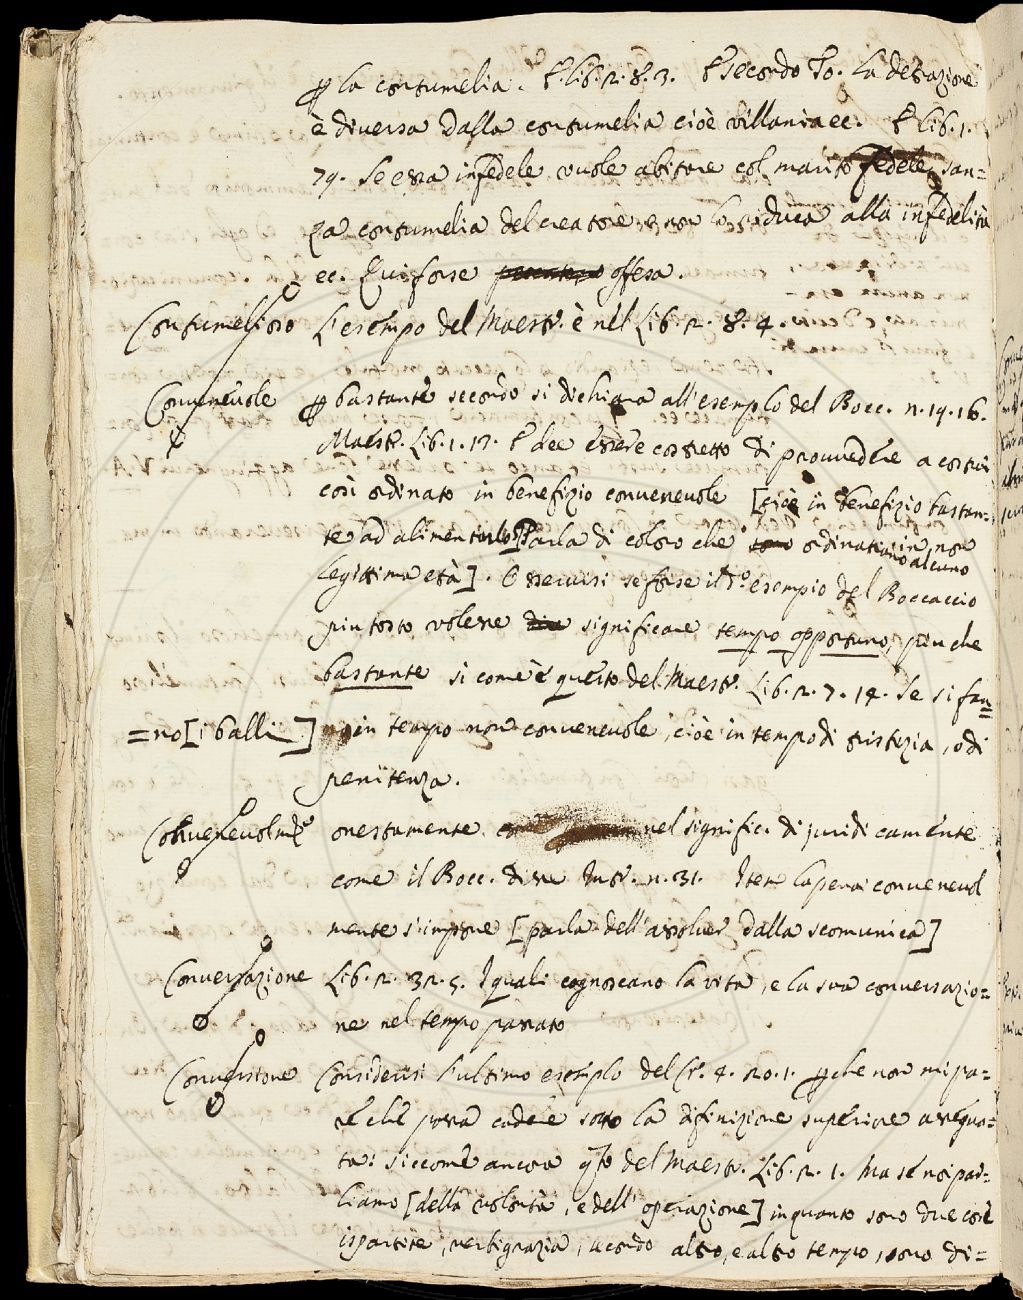 la contumelia. E lib. 2. 8. 3. E secondo To. la detrazione
è diversa dalla contumelia cioè villania ec. E lib. 1.
79. Se essa infedele vuole abitare col marito fedele, san=
za contumelia del creatore e non lo riduca alla infedelità
ec. Qui forse offesa.
Contumelioso L'esempo del Maestr. è nel Lib. 2. 8. 4.
Convenevole bastante secondo si dichiara all'esemplo del Bocc. n. 19. 16.
Maestr. Lib. 1. 17. E dee essere costretto di provvedere a costui
così ordinato in benefizio convenevole [cioè in benefizio bastan=
te ad alimentarlo Parla di coloro che ordinati in non
alcuno
legittima età]. Osservisi se forse il p.º esempio del Boccaccio
piuttosto volesse significare tempo opportuno, più che
bastante si come è questo del Maestr. Lib. 2. 7. 14. Se si fan=
=no [i balli] in tempo non convenevole, cioè in tempo di tristizia, o di
penitenza.
Convenevolmte onestamente nel signific. di juridicamente
come il Bocc. disse Intr. n. 31. Item la pena convenevol
mente s'impone [parla dell'assolver dalla scomunica]
Conversazione Lib. 2. 32. 5. I quali cognoscano la vita, e la sua conversazio=
ne nel tempo passato
Conversione Considerisi l'ultimo esemplo del Cr. 4. 20. 1. che non mi pa=
re che possa cadere sotto la difinizione superiore assegna=
ta: siccome ancora qto del Maestr. Lib. 2. 1. Ma se noi par=
liamo [della volontà, e dell'operazione] in quanto sono due cose
ispartite, verbigrazia, secondo altro, e altro tempo, sono di=